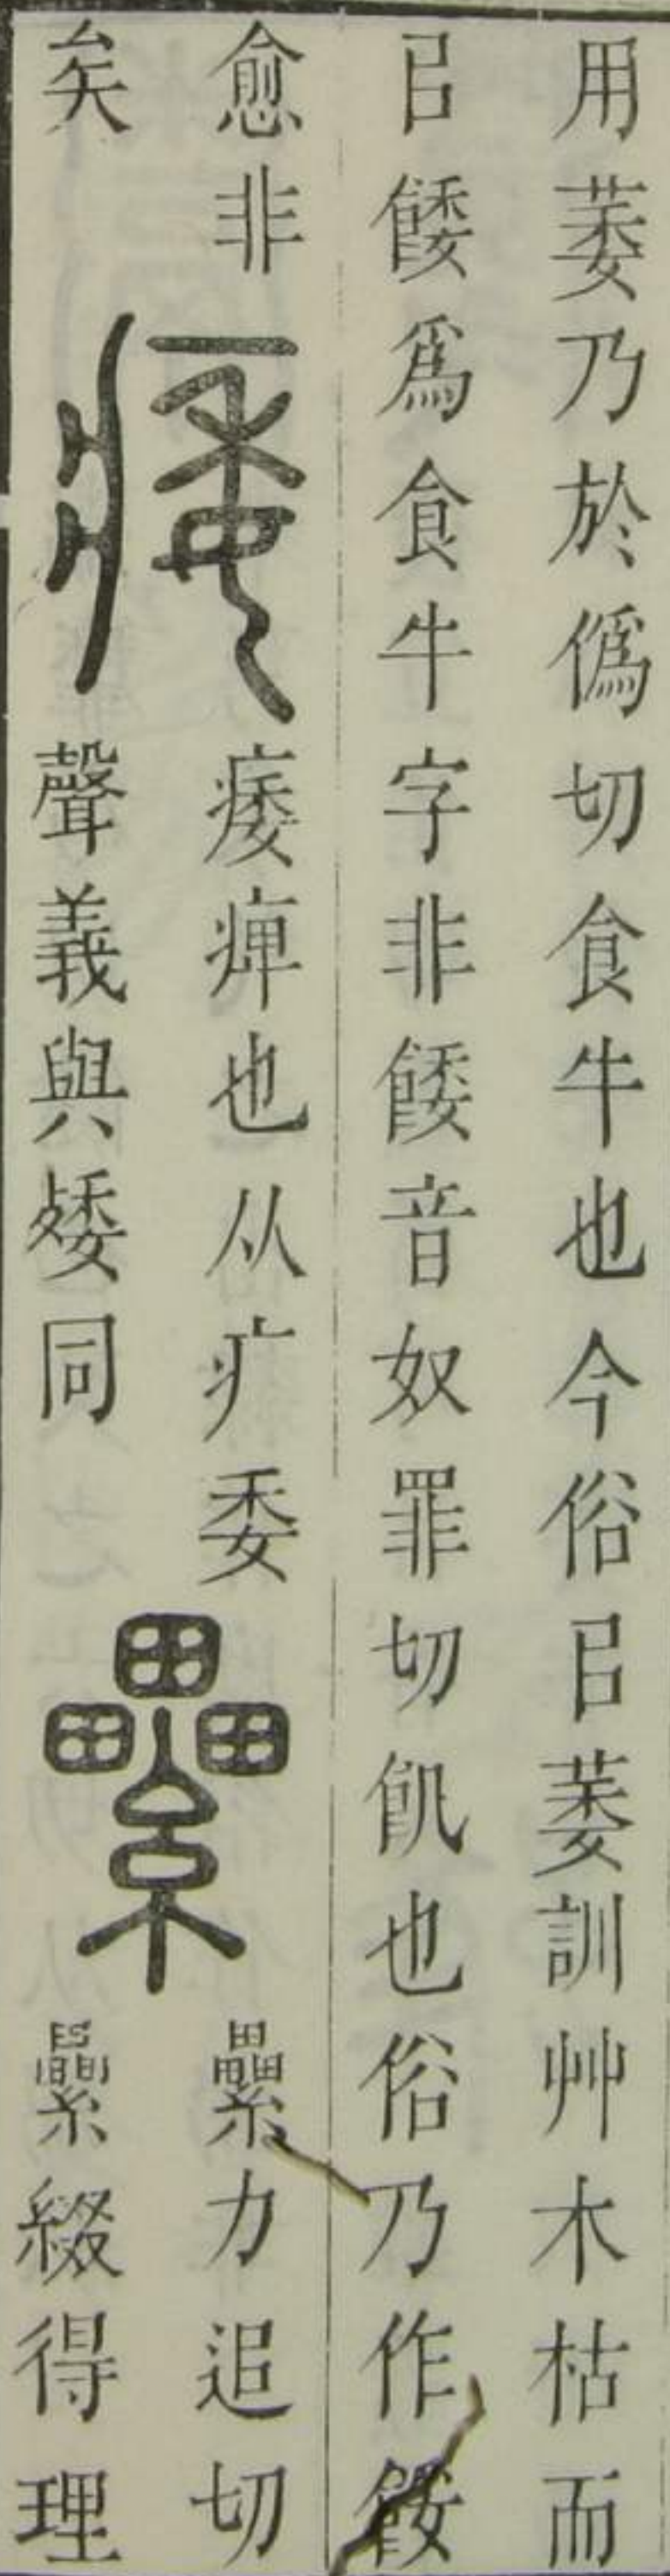 用萎乃於僞切食牛也今俗㠯萎訓艸木枯而
㠯餧爲食牛字非餧音奴罪切飢也俗乃作餒
愈非
矣
痿
痿痺也从疒委
聲義與矮同
纍
纍力追切
纍綴得理